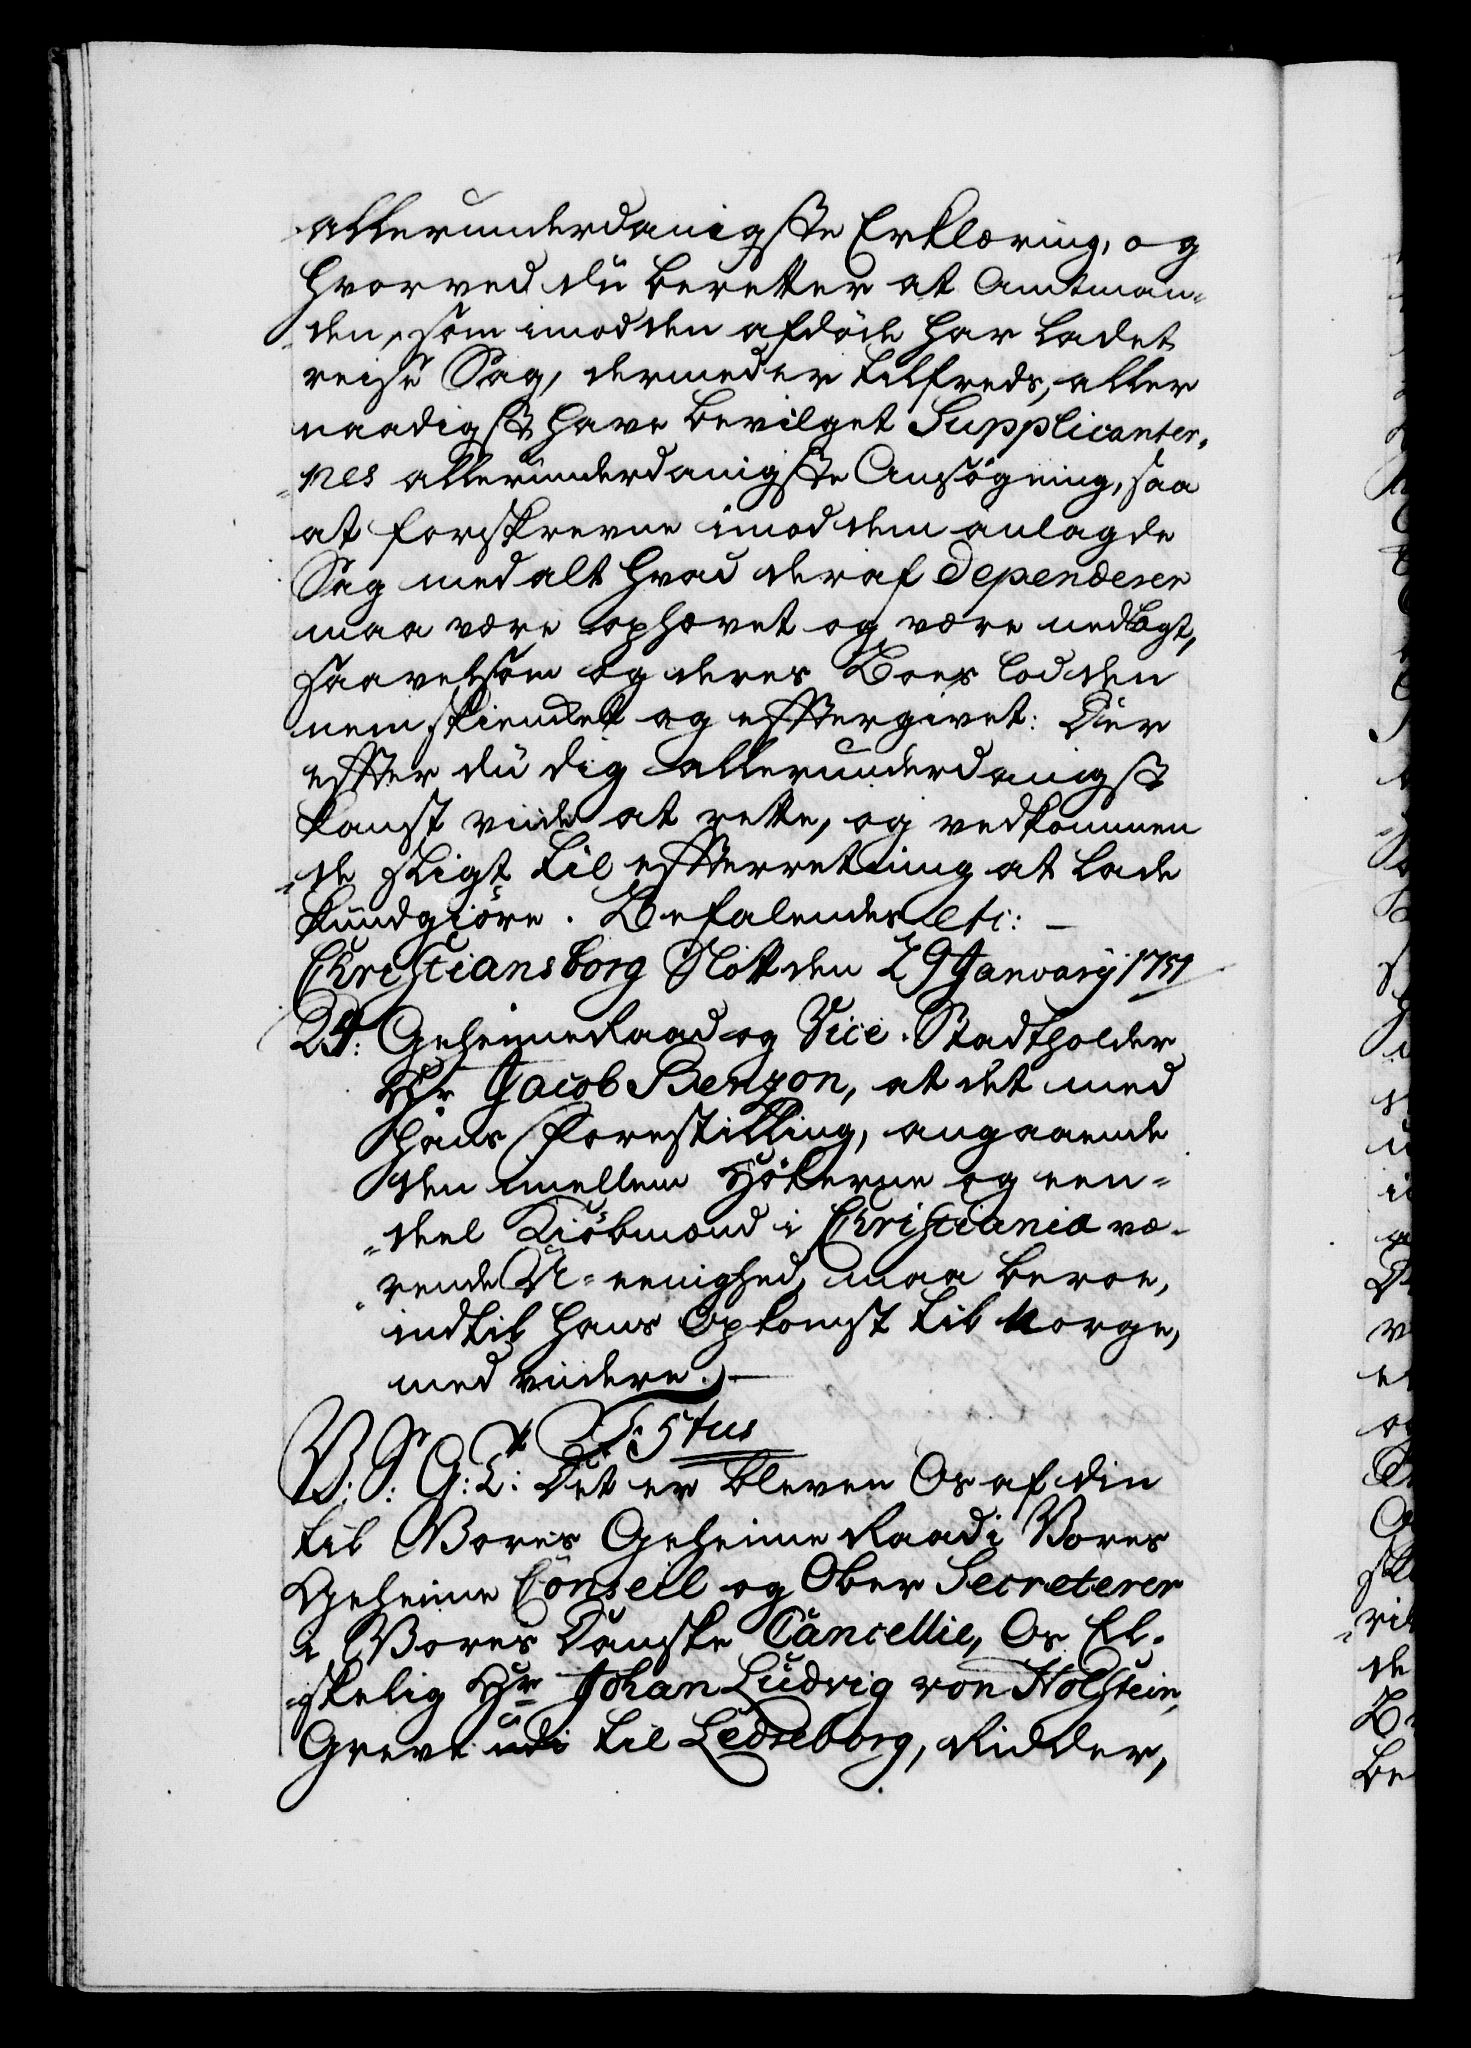 allerunderdanigste Erklæring, og
hvorved du beretter at Amtman„
„den, som imod den afdöde har ladet
reise Sag, dermed er tilfreds, aller
naadigst have bevilget Supplicanter„
„nes allerunderdanigste Ansögning, saa
at forskrevne imod dem anlagde
Sag med alt hvad deraf dependerer
maa være ophævet og være nedlagt,
saavelsom og deres Boes Lodden
uemskiendet og efftergivet: Der
effter du dig allerunderdanigst
kanst viide at rette, og vedkommen
„de sligt til effterretning at lade
kundgiöre. Befalendes etc: —
Christiansborg Slott den 29 January 1751
24: Geheime Raad og Vice-Stadtholder
Hr Jacob Benzon, at det med
hans Forestilling, angaaende
den mellem Hökerne og een„
„deel Kiöbmænd i Christiania væ„
„rende U-eenighed, maa beroe,
indtil hans Opkomst til Norge,
med viidere. —
F: 5tus
V: Sr G: Tt: Det er bleven Os af din
til Vores Geheime Raad i Vores
Geheime Conseil og Ober Secreterer
i Vores Danske Cancellie, Os El„
skelig Hr Johan Ludvig von Holstein,
Greve udi til Ledreborg, Ridder,